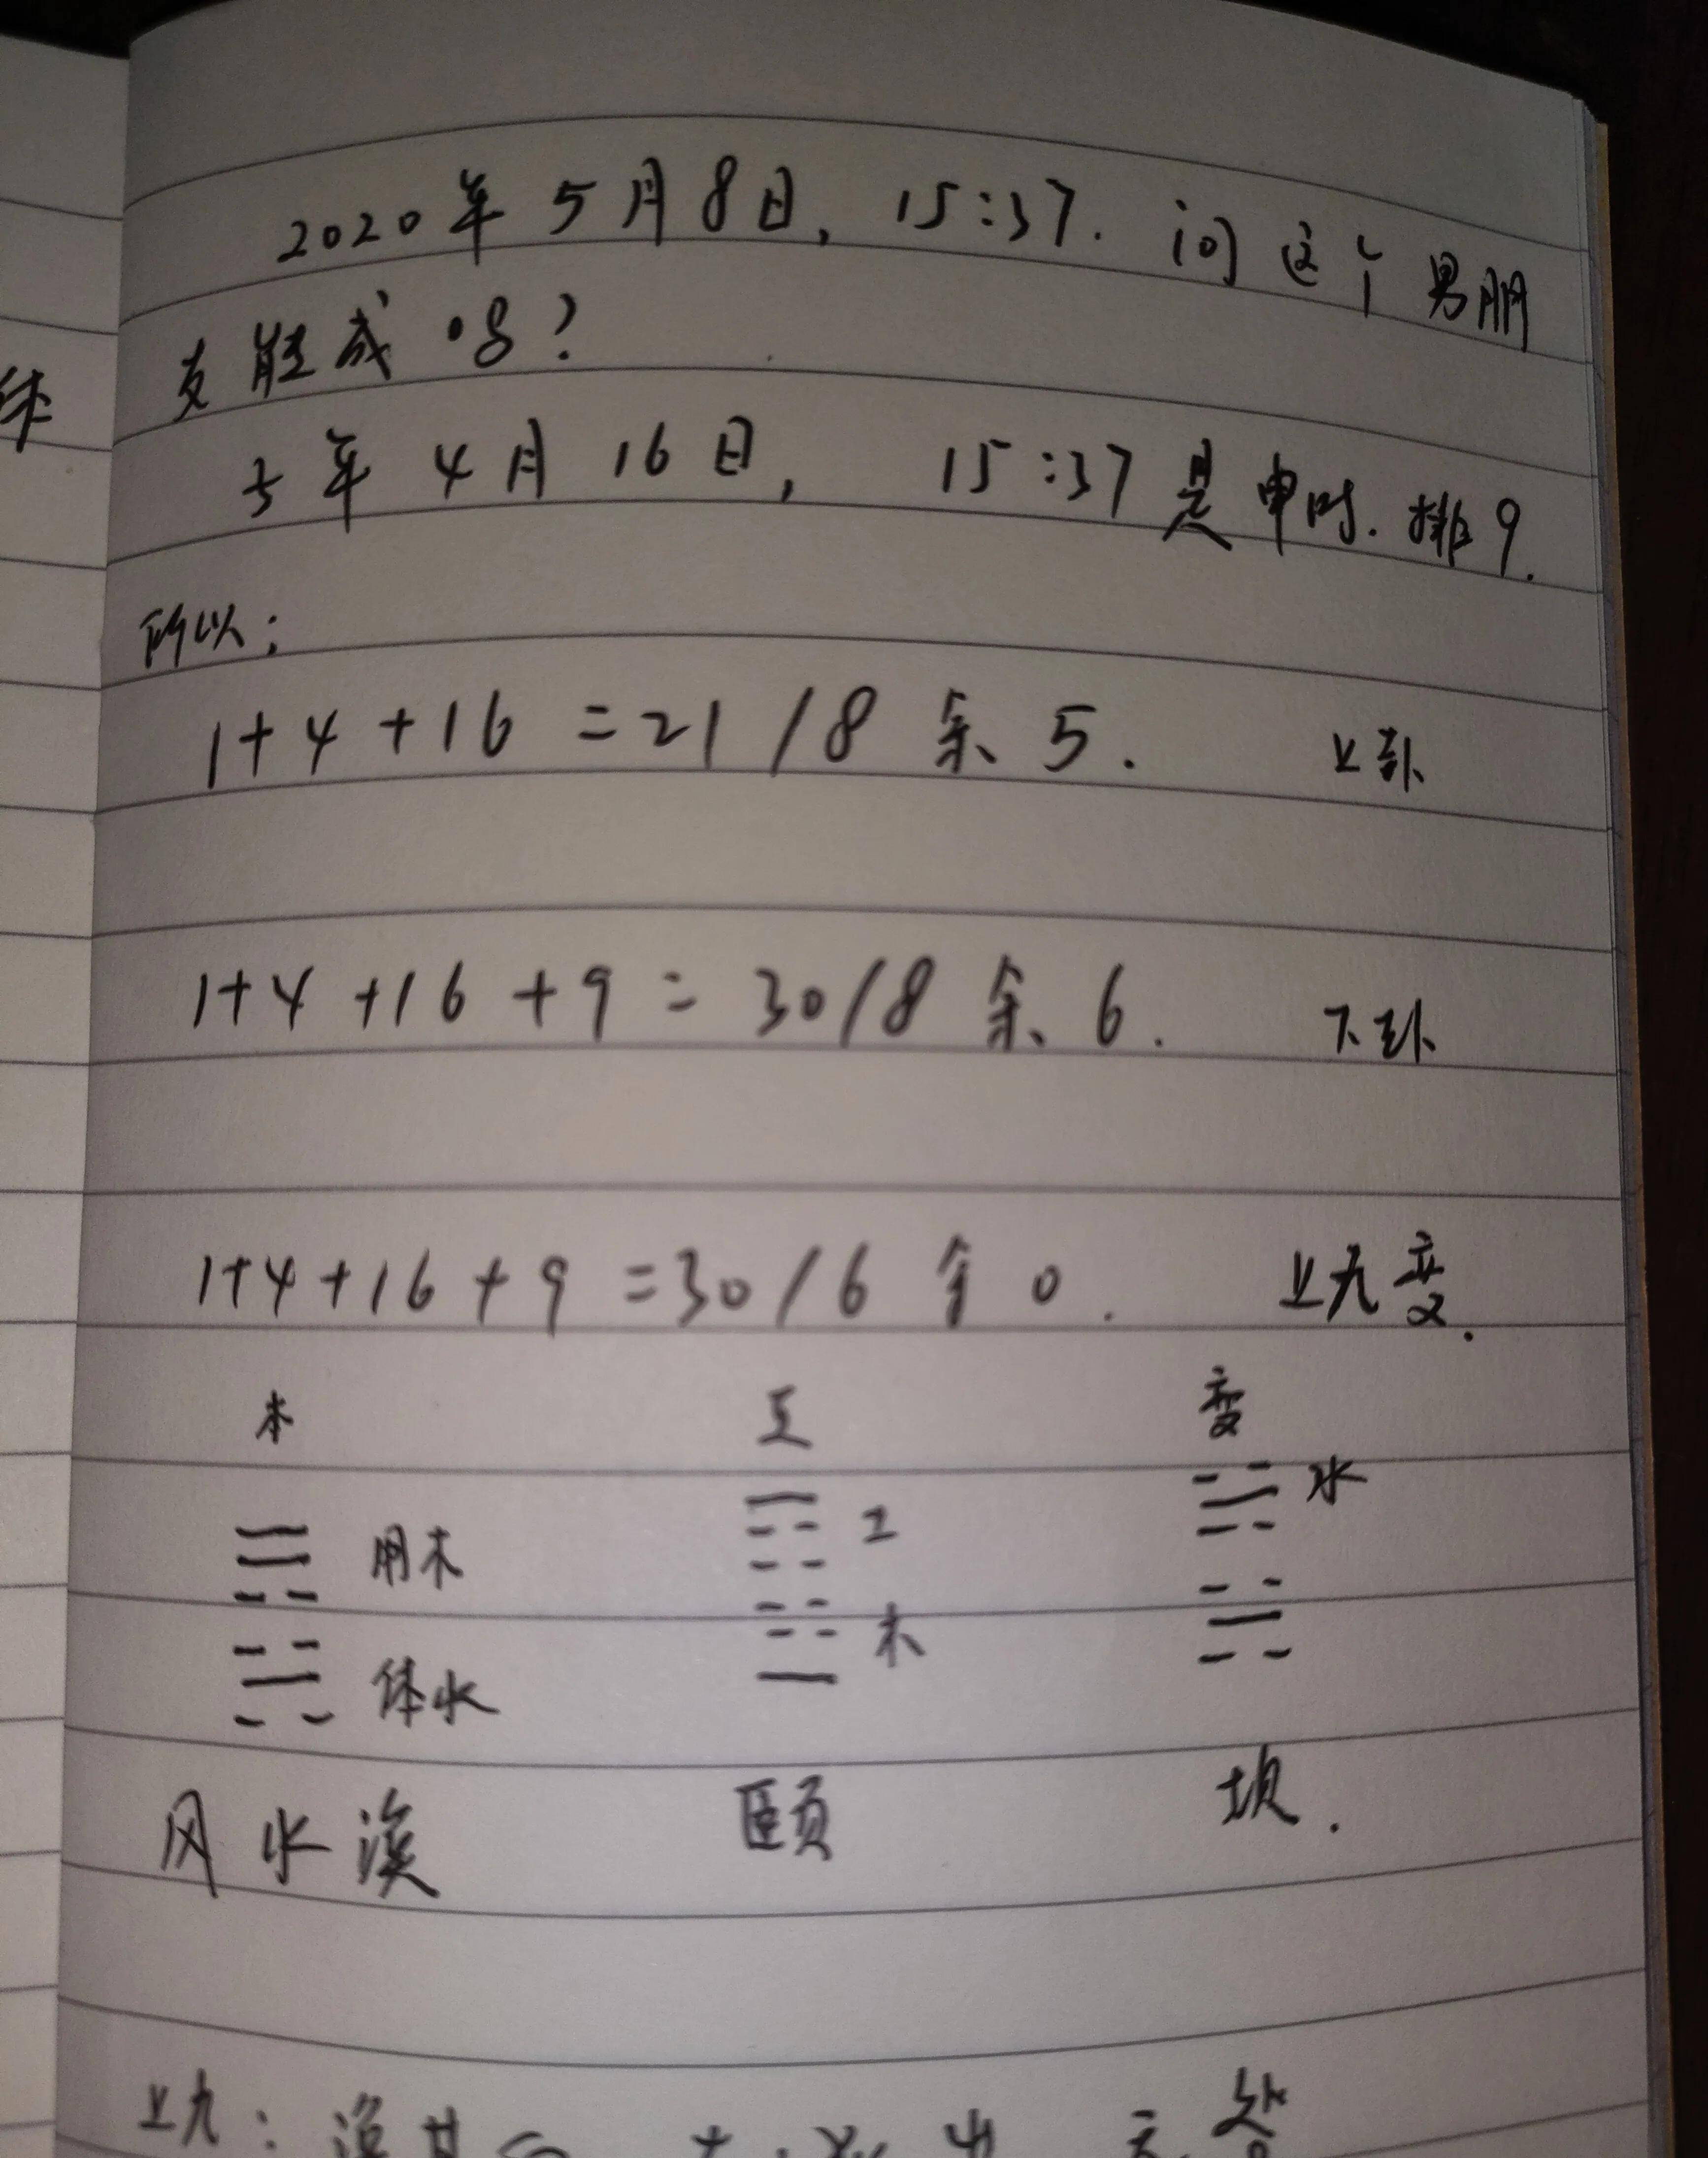 体
2020年5月8日, 15:37. 问这个男朋
友能成吗?
子年4月16日, 15:37是申时.排9.
所以:
1+4+16=21/8余5. 上卦
1+4+16+9=30/8余6. 下卦
1+4+16+9=30/6余0. 上九变.
本 互 变
水
用木 土
木
体水
风水涣 颐 坎.
上九: 涣其血